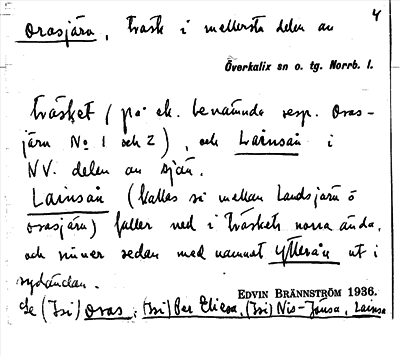 4
Orasjärv, träsk i mellersta delen av
Överkalix sn o. tg. Norrb. l.
Träsket (på ek. benämnda resp. Oras-
järv No 1 och 2), och Lainsån i
NV. delen av sjön.
Lainsån (kallas så mellan Landsjärv o
Orasjärv) faller ned i träskets norra ända,
och rinner sedan med namnet Ytterån ut i
sydändan.
EDVIN BRÄNNSTRÖM 1936.
Se Oras, Per Elicsa, Nis-Jonsa, Lainsa